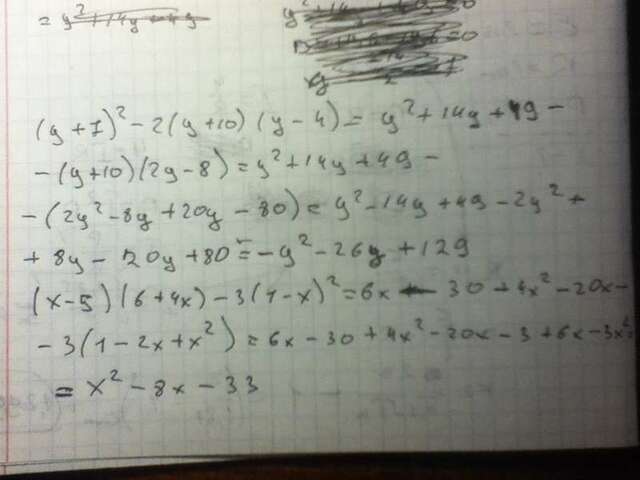 = y² + 14y + 49
(y + 7)² - 2(y + 10)(y - 4) = y² + 14y + 49 -
- (y + 10)(2y - 8) = y² + 14y + 49 -
- (2y² - 8y + 20y - 80) = y² - 14y + 49 - 2y² +
+ 8y - 20y + 80 = - y² - 26y + 129
(x - 5)(6 + 4x) - 3(1 - x)² = 6x - 30 + 4x² - 20x -
- 3(1 - 2x + x²) = 6x - 30 + 4x² - 20x - 3 + 6x - 3x² =
= x² - 8x - 33